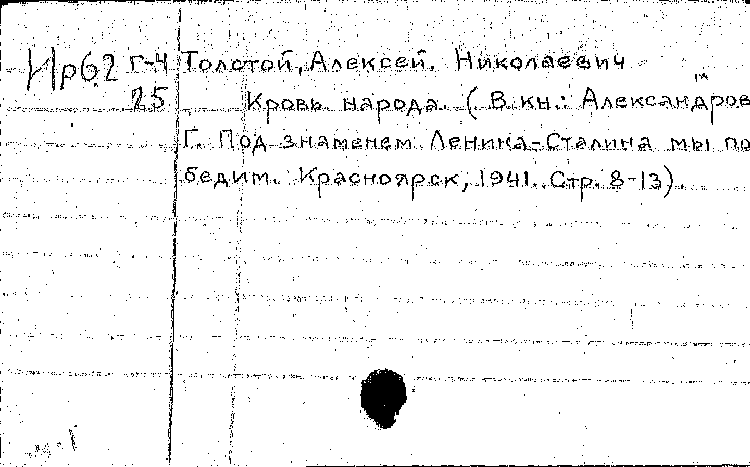 Ир62 Г-4 Толстой, Алексей. Николаевич
25 Кровь народа. (В кн.: Александров
Г. Под знаменем Ленина-Сталина мы по
бедим. Красноярск, 1941. Стр. 8-13).